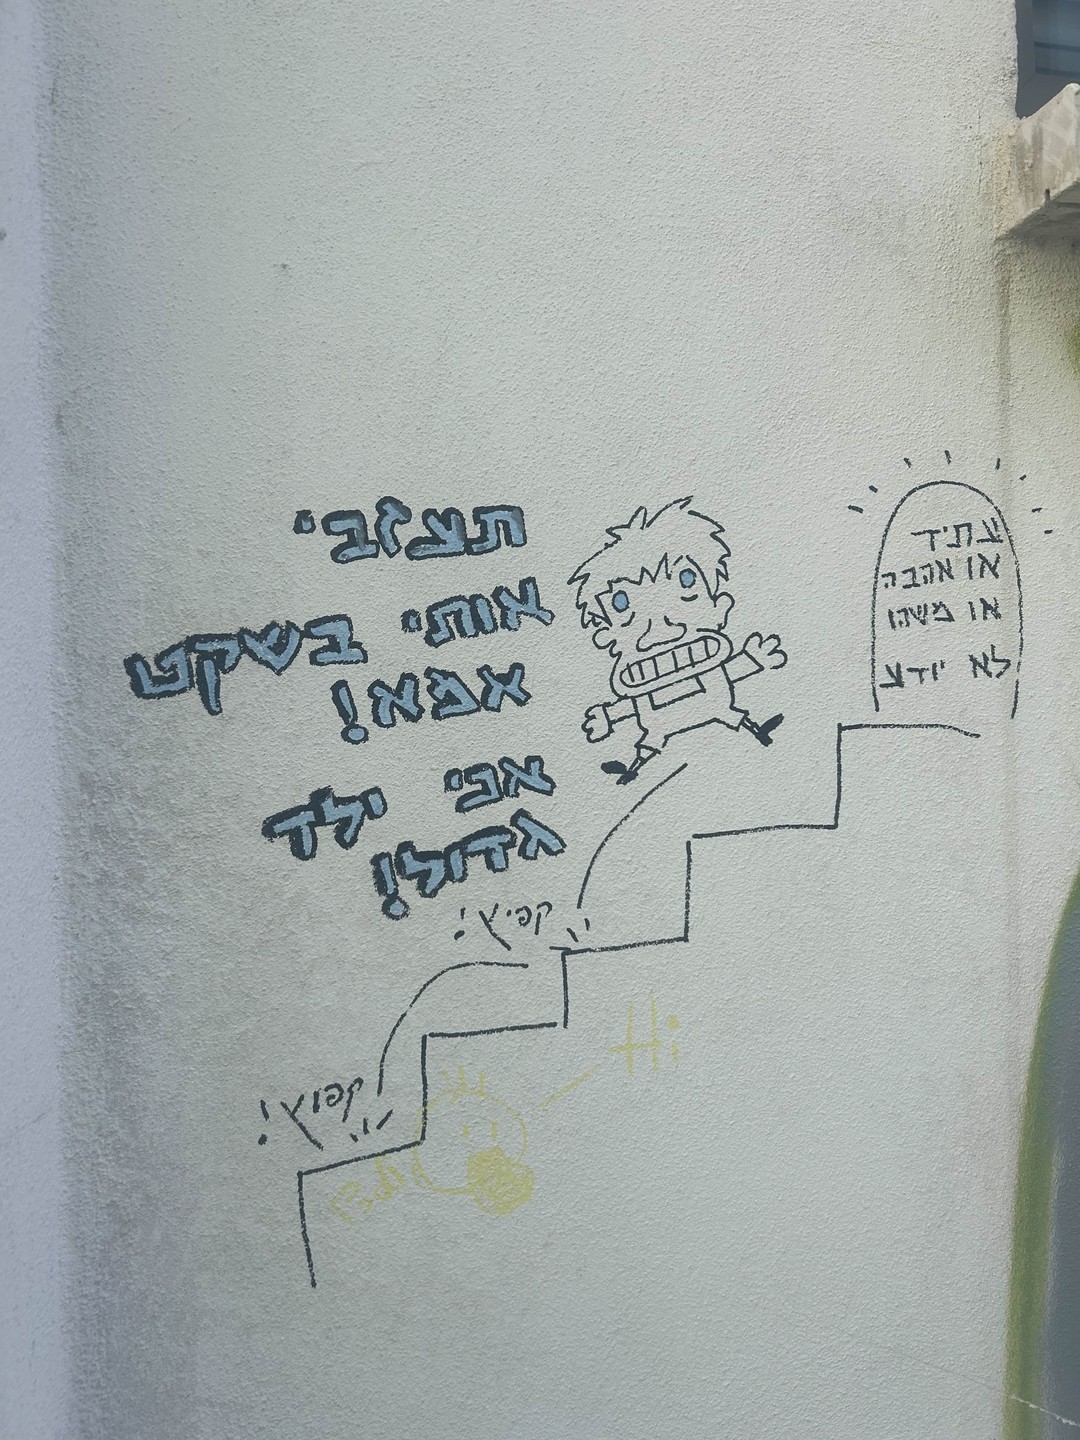 תעזבי
אותי בשקט
אמא!
אני ילד
גדול!
עתיד
או אהבה
או משהו
לא יודע
קפיץ!
קפוץ!
Hi